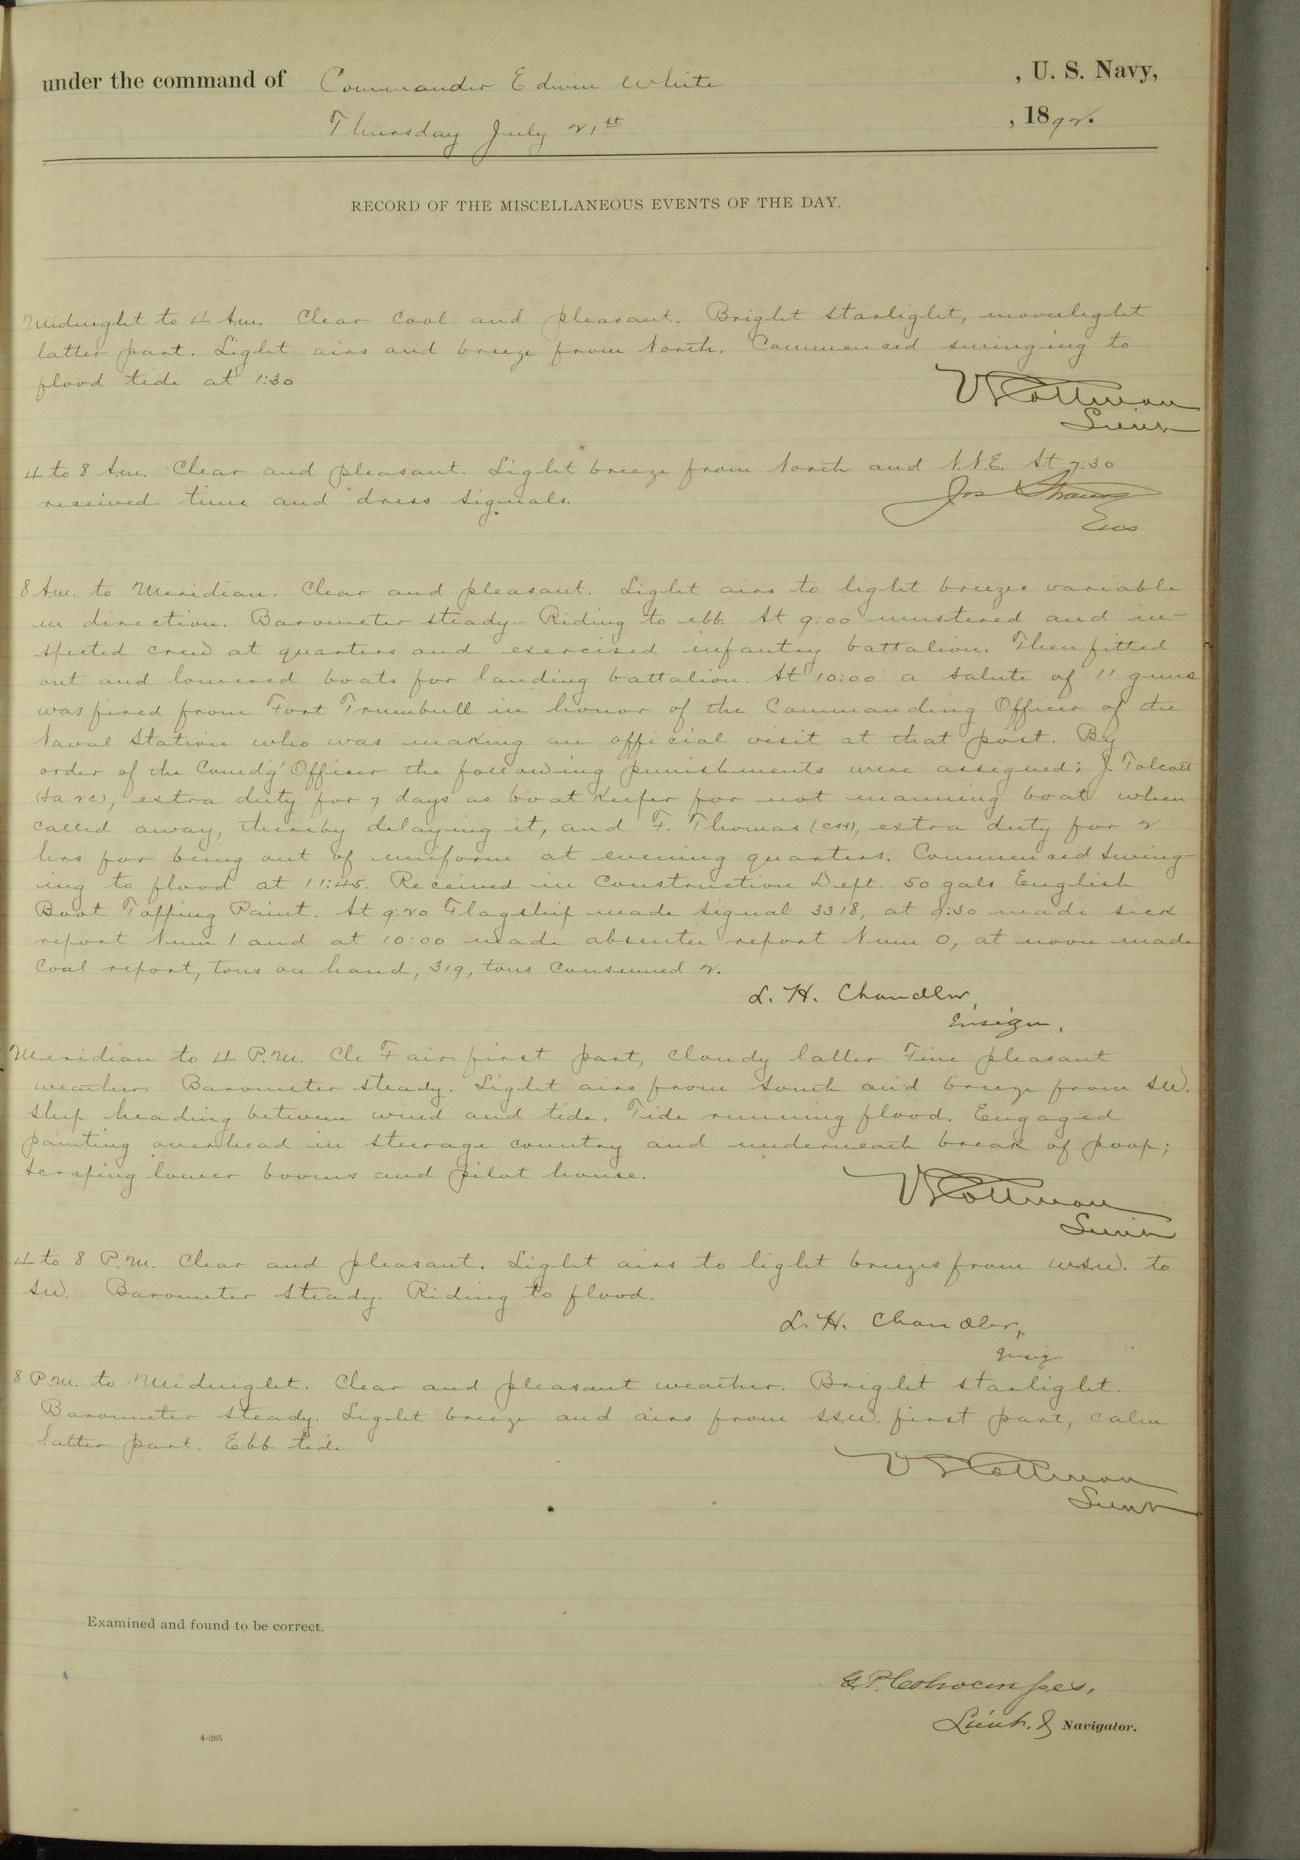 under the command of Commander Edwin White , U. S. Navy,
Thursday July 21st , 1892.
RECORD OF THE MISCELLANEOUS EVENTS OF THE DAY.
Midnight to 4 Am. Clear cool and pleasant. Bright starlight, moonlight
latter part. Light airs and breeze from North. Commenced swinging to
flood tide at 1:30
Lieut
4 to 8 Am. Clear and pleasant. Light breeze from North and N.N.E. At 7:30
received time and dress signals.
Jos Strauss
Ens
8 Am. to Meridian. Clear and pleasant. Light airs to light breezes variable
in direction. Barometer steady. Riding to ebb. At 9:00 mustered and in-
spected crew at quarters and exercised infantry battalion. Then fitted
out and lowered boats for landing battalion. At 10:00 a salute of 11 guns
was fired from Fort Trumbull in honor of the Commanding Officer of the
Naval Station who was making an official visit at that post. By
order of the Comdg' Officer the following punishments were assigned: J. Tolcott
(Sa 2c), extra duty for 7 days as boat keeper for not manning boat when
called away, thereby delaying it, and F. Thomas extra duty for 2
hrs for being out of uniform at evening quarters. Commenced swing-
ing to flood at 11:45. Received in Construction Dept. 50 gals English
Boot Topping Paint. At 9:20 Flagship made signal 3318, at 9:30 made sick
report Num 1 and at 10:00 made absentee report Num 0, at noon made
coal report, tons on hand, 319, tons consumed 2.
L. H. Chandler,
Ensign.
Meridian to 4 P.M. Cle Fair first part, cloudy latter. Fine pleasant
weather. Barometer steady. Light airs from South and breeze from SW.
Ship heading between wind and tide. Tide running flood. Engaged
painting overhead in steerage country and underneath break of poop;
scraping lower booms and pilot house.
Lieut
4 to 8 P.M. Clear and pleasant. Light airs to light breezes from WSW. to
SW. Barometer steady. Riding to flood.
L. H. Chandler,
Ensig
8 P.M. to Midnight. Clear and pleasant weather. Bright starlight.
Barometer steady. Light breeze and airs from SSW. first part, calm
latter part. Ebb tide
Lieut
Examined and found to be correct.
Lieut. & Navigator.
4-265